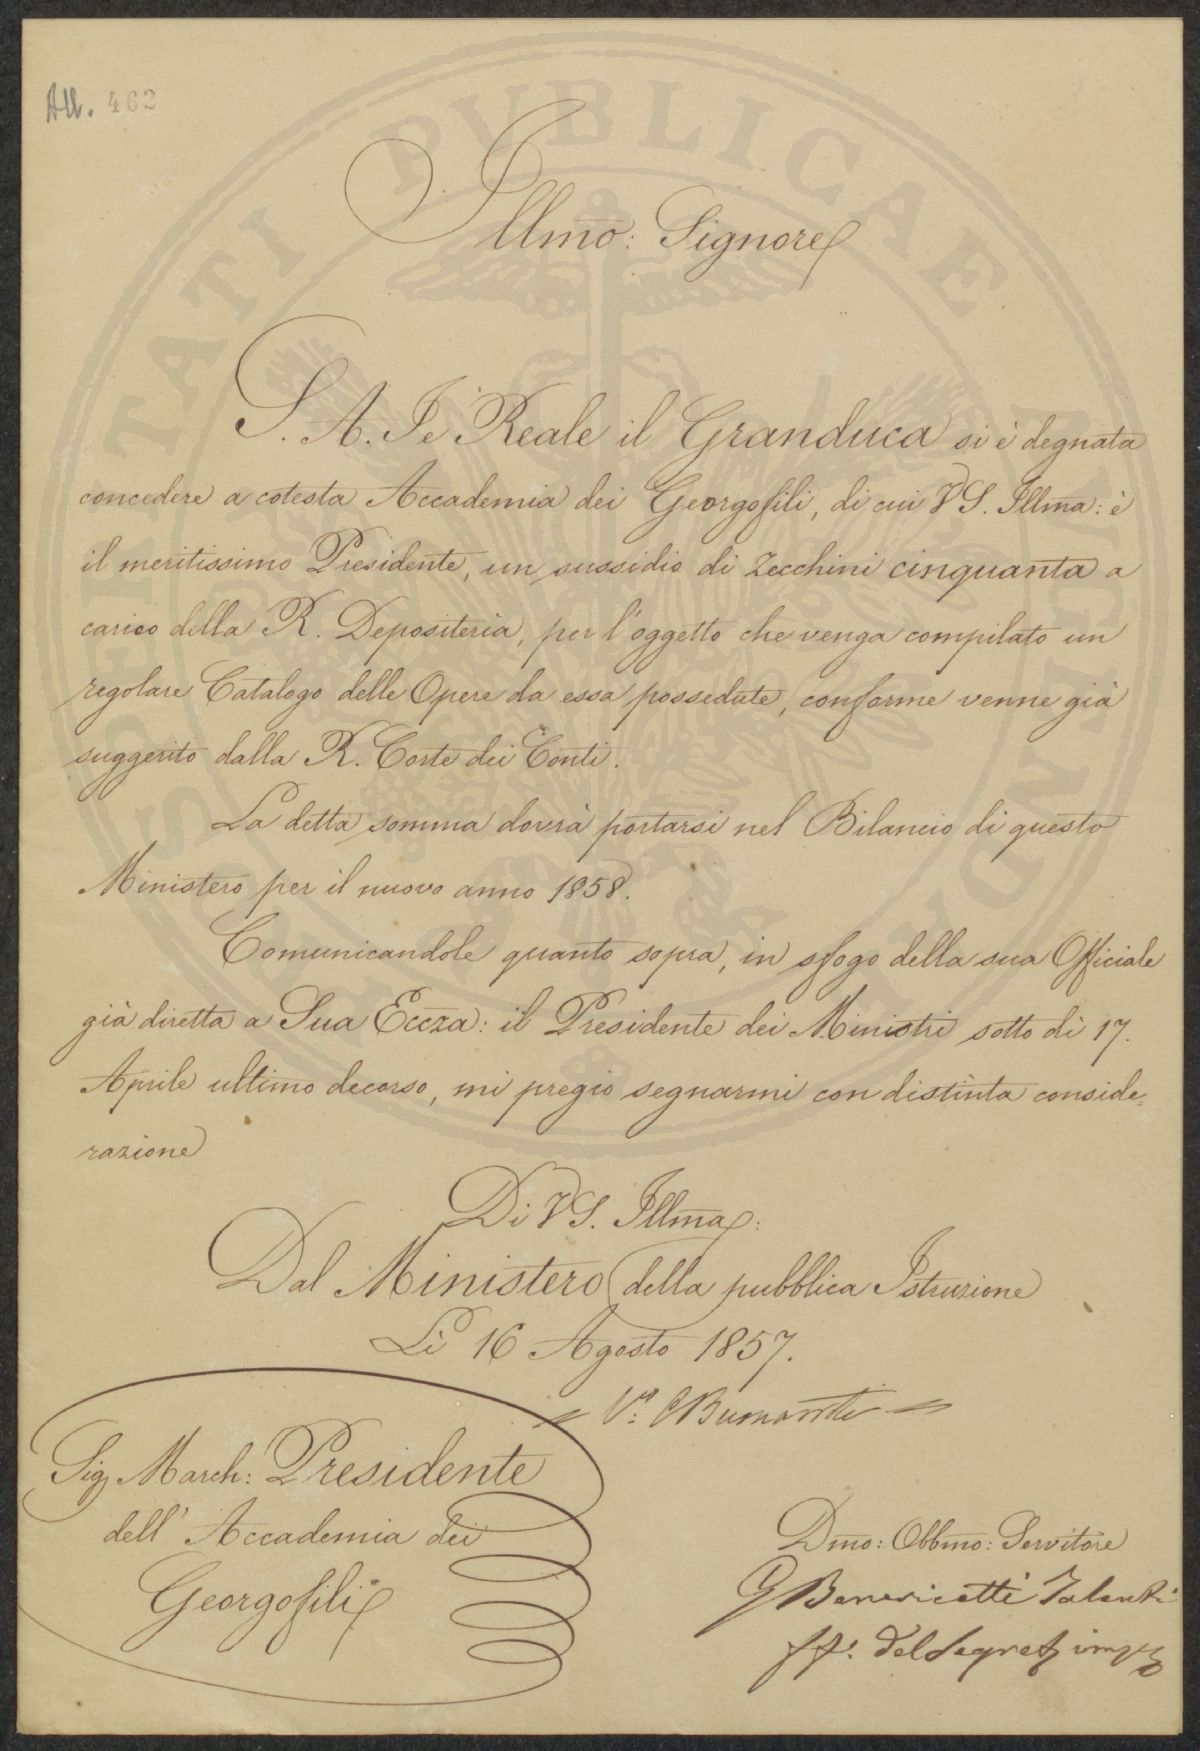 All. 462
Illmo: Signore
S. A. I. e Reale il Granduca si è degnata
concedere a cotesta Accademia dei Georgofili, di cui V S. Illma: è
il meritissimo Presidente, un sussidio di Zecchini cinquanta a
carico della R. Depositeria, per l'oggetto che venga compilato un
regolare Catalogo delle Opere da essa possedute, conforme venne già
suggerito dalla R. Corte dei Conti.
La detta somma dovrà portarsi nel Bilancio di questo
Ministero per il nuovo anno 1858.
Comunicandole quanto sopra, in sfogo della sua Officiale
già diretta a Sua Eccza: il Presidente dei Ministri sotto dì 17.
Aprile ultimo decorso, mi pregio segnarmi con distinta conside=
razione
Di V S. Illma:
Dal Ministero della pubblica Istruzione
Lì 16 Agosto 1857.
V.
Sig March: Presidente
dell' Accademia dei
Georgofili
Dmo: Obbmo: Servitore
G Benericetti Talenti
ff. del Segret